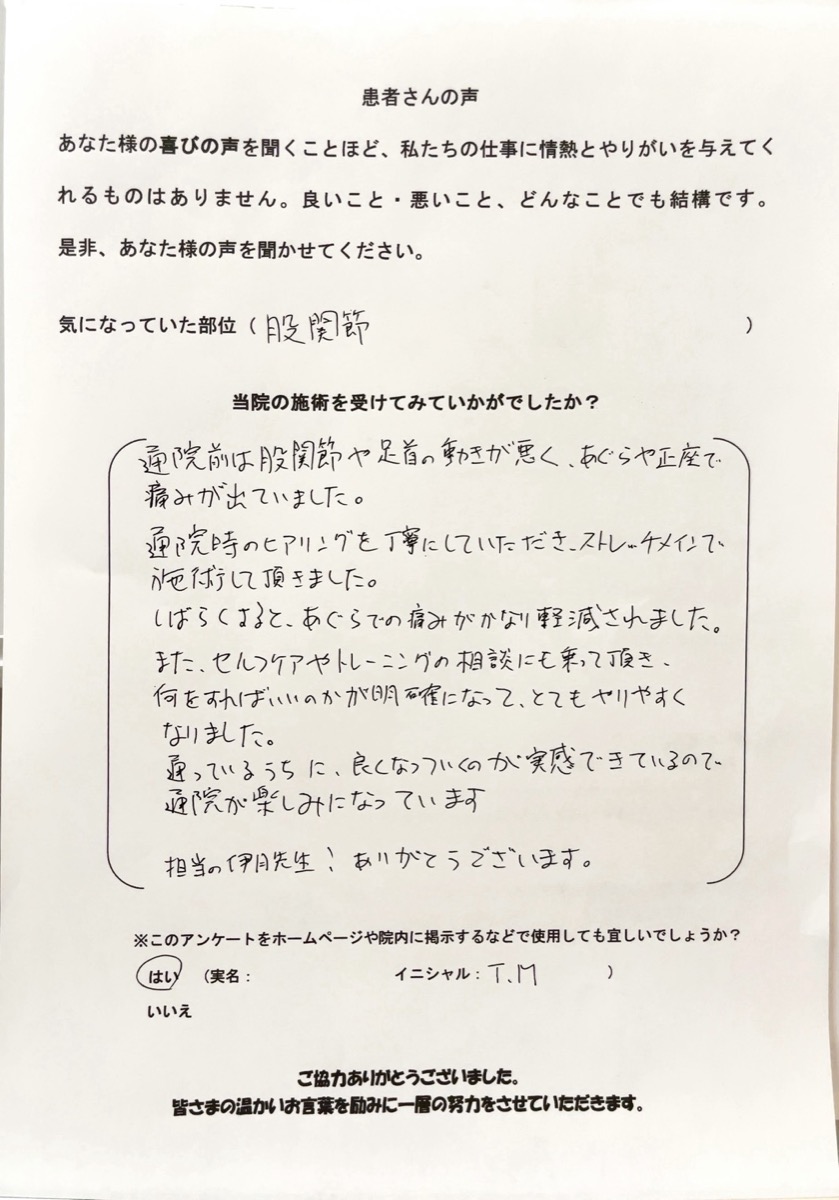 患者さんの声
あなた様の喜びの声を聞くことほど、私たちの仕事に情熱とやりがいを与えてく
れるものはありません。良いこと・悪いこと、どんなことでも結構です。
是非、あなた様の声を聞かせてください。
気になっていた部位（股関節）
当院の施術を受けてみていかがでしたか？
通院前は股関節や足首の動きが悪く、あぐらや正座で
痛みが出ていました。
通院時のヒアリングを丁寧にしていただき、ストレッチメインで
施術して頂きました。
しばらくすると、あぐらでの痛みがかなり軽減されました。
また、セルフケアやトレーニングの相談にも乗って頂き、
何をすればいいのかが明確になって、とてもやりやすく
なりました。
通っているうちに、良くなっついくのが実感できているので
通院が楽しみになっています
担当の伊月先生！ありがとうございます。
※このアンケートをホームページや院内に掲示するなどで使用しても宜しいでしょうか？
はい （実名： イニシャル：T.M ）
いいえ
ご協力ありがとうございました。
皆さまの温かいお言葉を励みに一層の努力をさせていただきます。